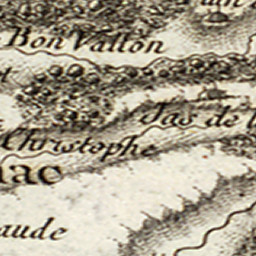 Bon Vallon
Jas de
Christophe
nac
aude